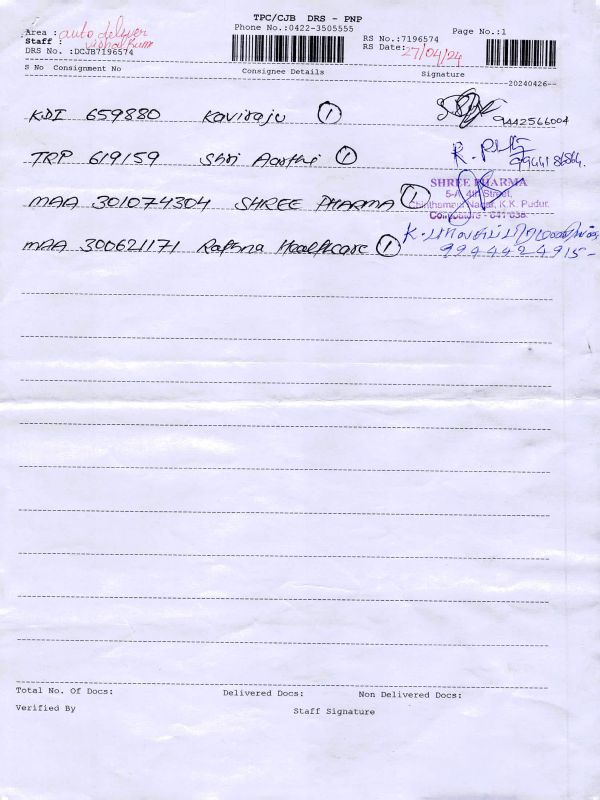 TPC/CJB DRS - PNP
Phone No.:0422-3505555
Area : auto delivery
Staff :
DRS No. :DCJB7196574
RS No.:7196574
RS Date: 27/04/24
Page No.:1
S No Consignment No Consignee Details Signature
20240426--
KDI 659880 Kaviraju 1
9442566004
TRP 619159 Shri Aarthi 1
MAA 301074304 SHREE PHARMA 1
SHREE PHARMA
5-A, 4th Street,
Chinthamani Nagar, K.K. Pudur,
Coimbatore - 641 038.
MAA 300621171 Rathna Healthcare 1
9944424915-
Total No. Of Docs: Delivered Docs: Non Delivered Docs:
Verified By Staff Signature